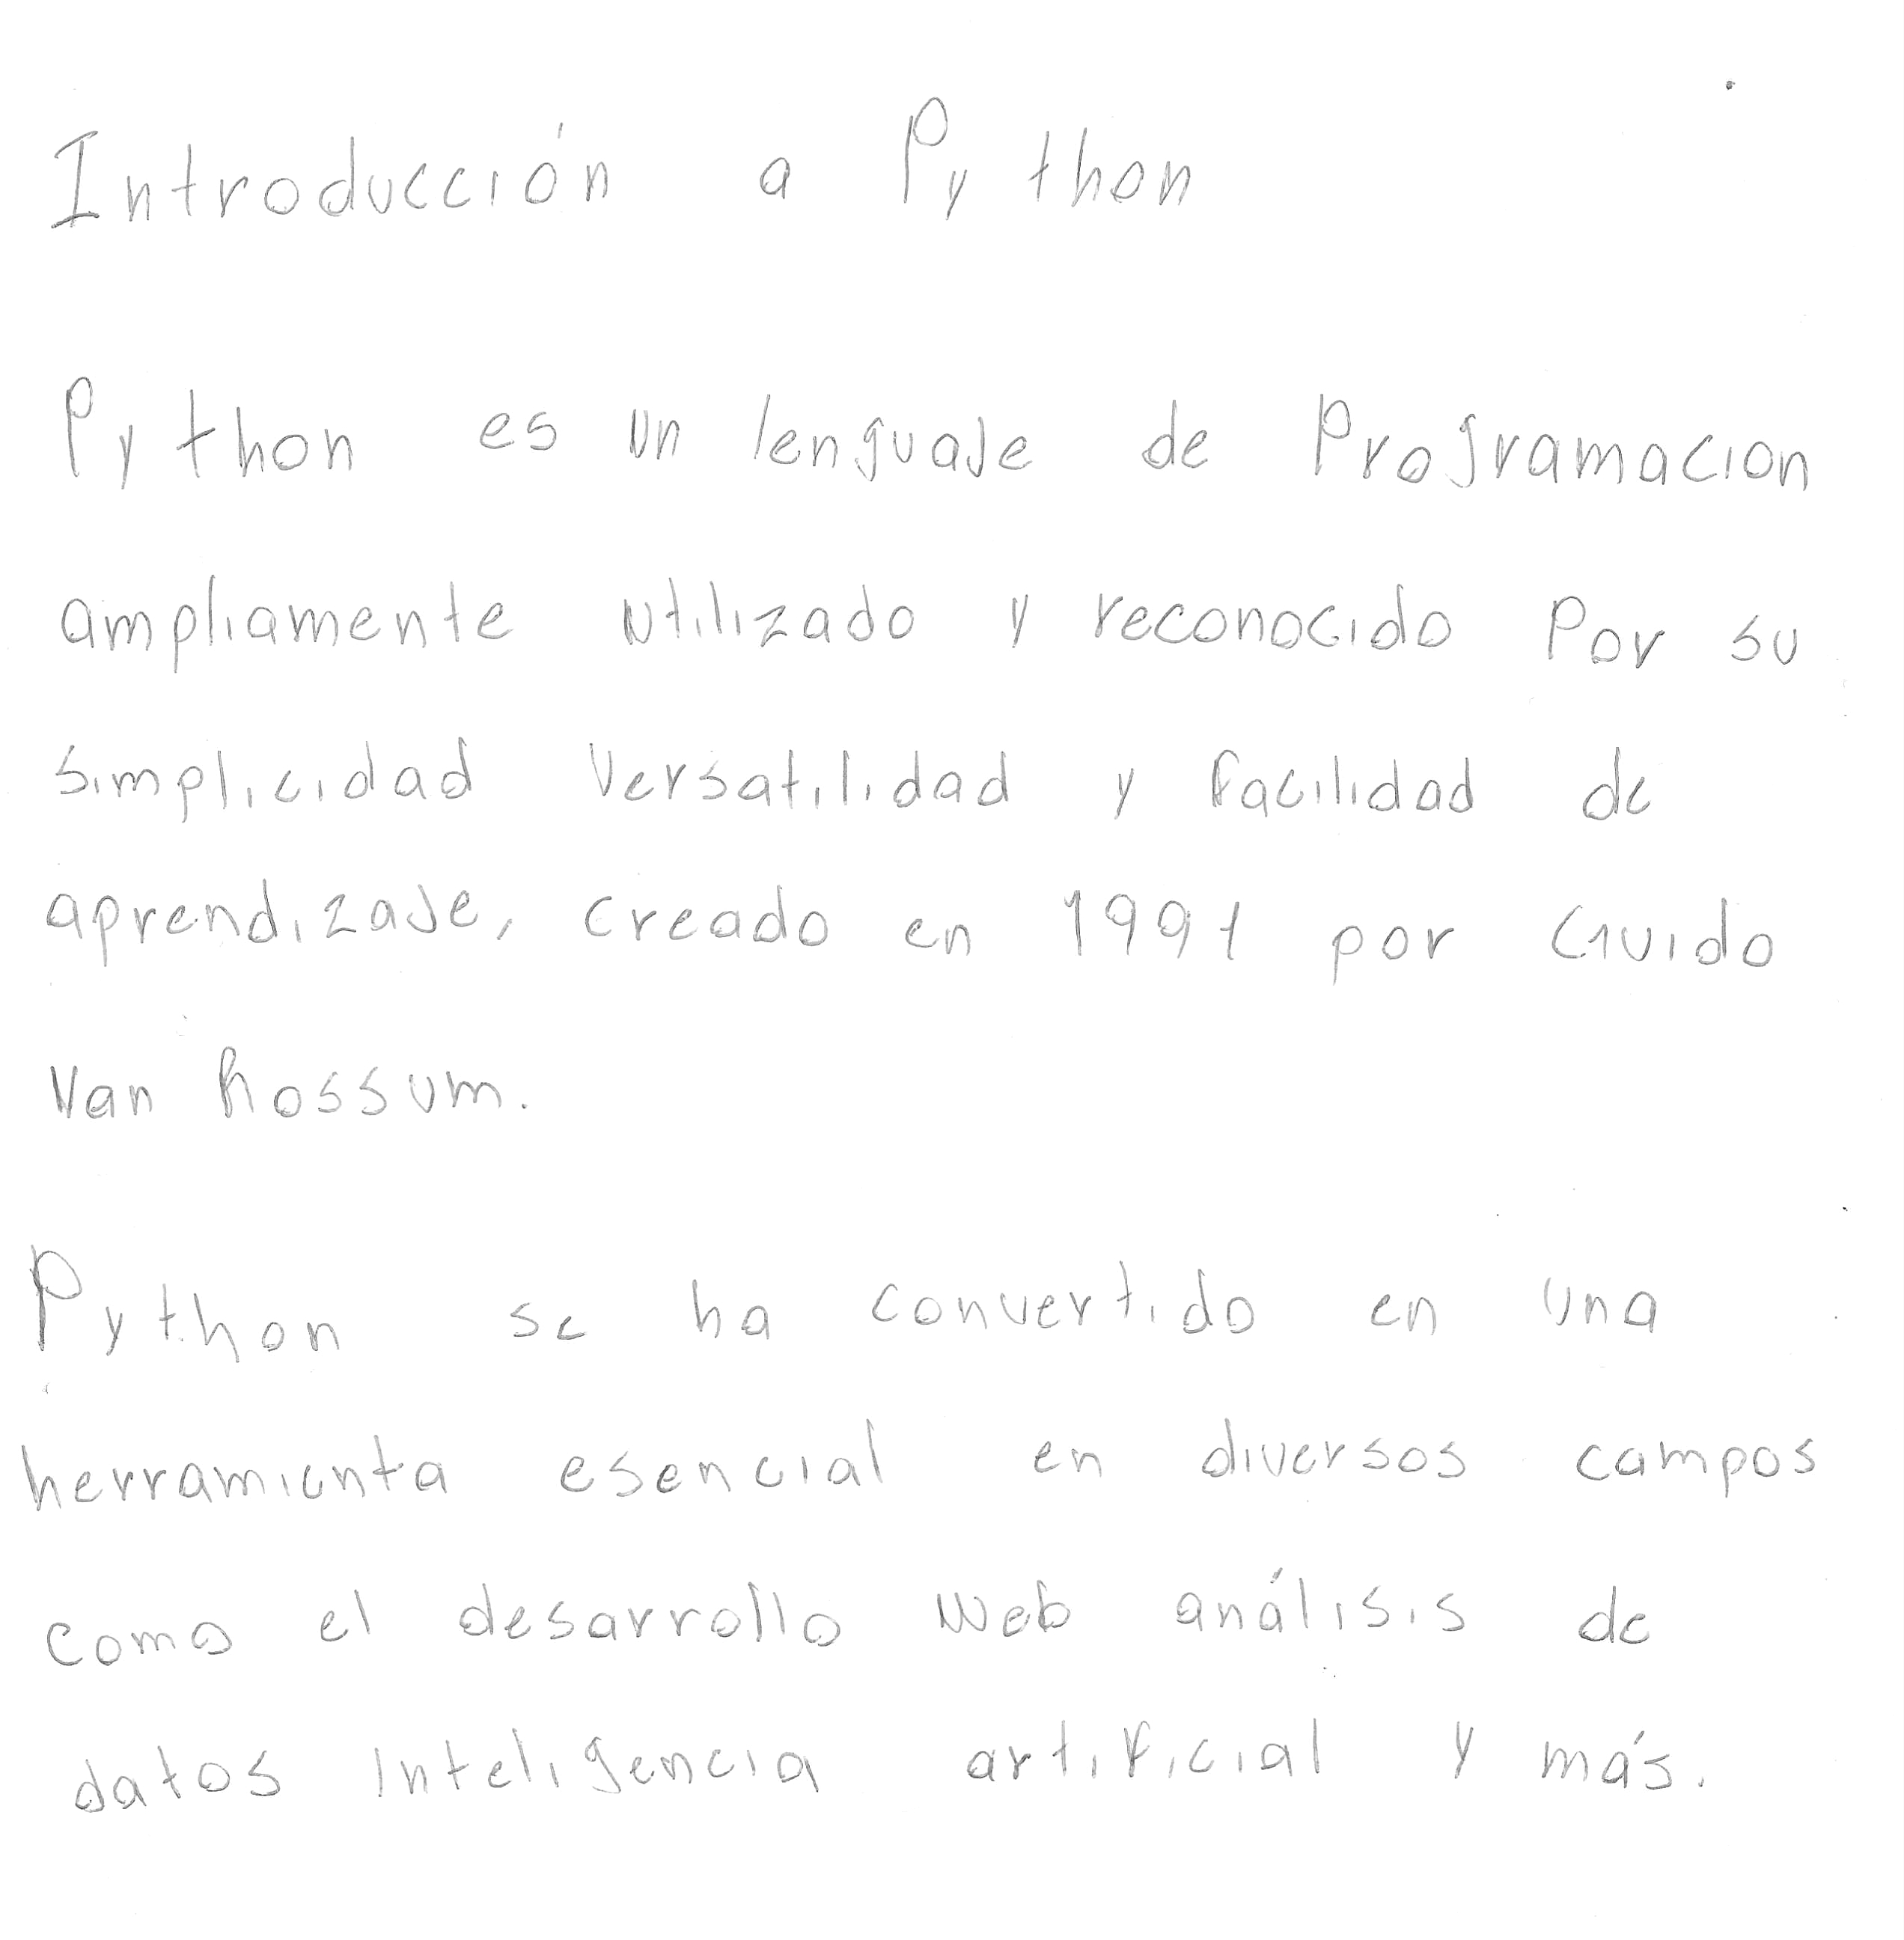 Introducción a Python
Python es un lenguaje de Programacion
ampliamente utilizado y reconocido Por su
simplicidad Versatilidad y facilidad de
aprendizaje, creado en 1991 por Guido
Van Rossum.
Python se ha convertido en una
herramienta esencial en diversos campos
como el desarrollo Web análisis de
datos Inteligencia artificial y más.